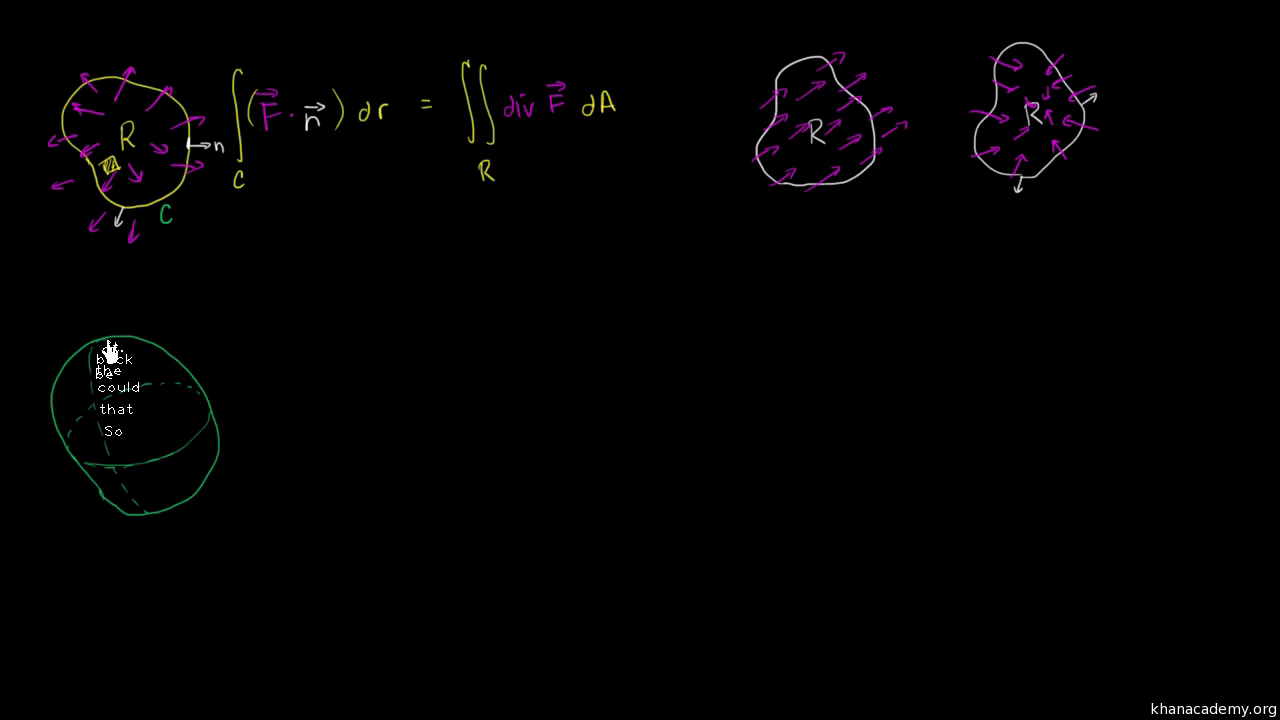 R
n
C
∫_C (F⃗ · n⃗) dr = ∬_R div F⃗ dA
R
R
back
the
be
could
that
So
khanacademy.org